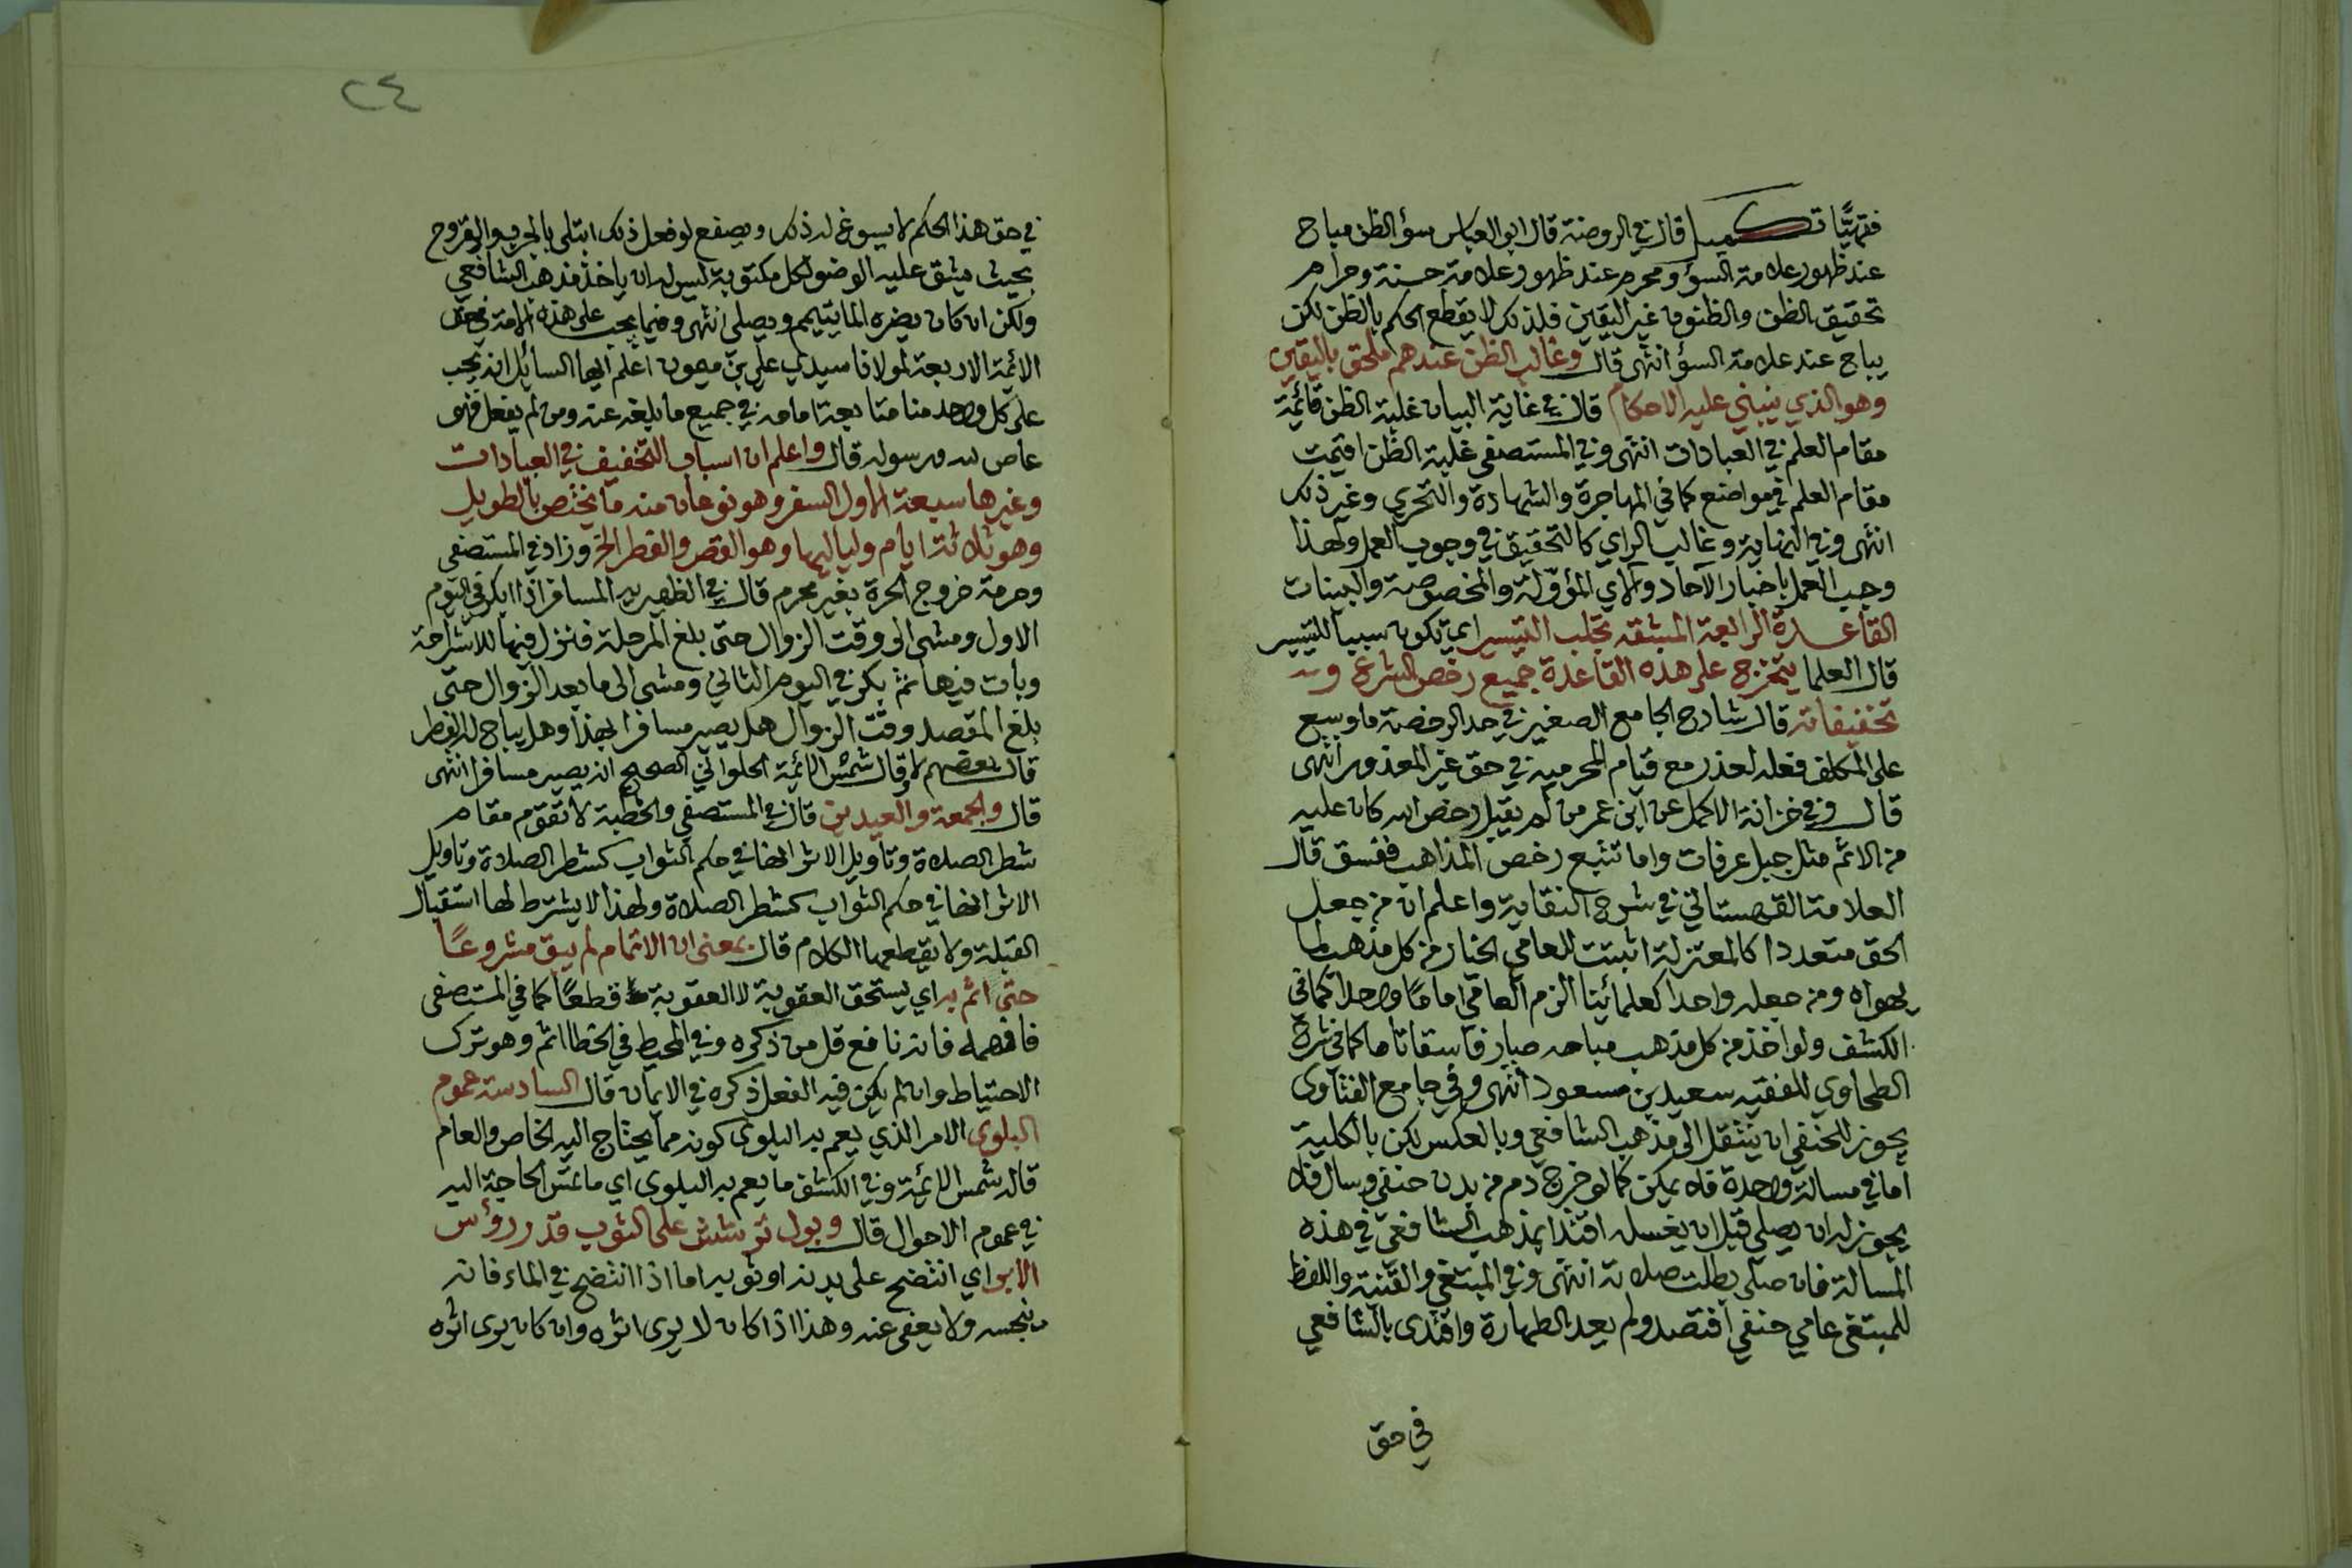 فتهيًا تكميل قال في الروضة قال ابو العباس سؤ الظن مباح
عند ظهور علامة السؤ ومحرم عند ظهور علامة حسنة وحرام
تحقيق الظن والظنون غير اليقين فلذلك لا يقطع الحكم بالظن لكن
يباح عند علامة السؤ انتهى قال وغالب الظن عندهم ملحق باليقين
وهو الذي يبتني عليه الاحكام قال في غاية البيان غلبة الظن قائمة
مقام العلم في العبادات انتهى وفي المستصفى غلبة الظن اقيمت
مقام العلم في مواضع كما في المهاجرة والشهادة والتحري وغير ذلك
انتهى وفي النهاية وغالب الراي كالتحقيق في وجوب العمل ولهذا
وجب العمل باخبار الآحاد والآي المؤولة والمخصوصة والبينات
القاعدة الرابعة المشقة تجلب التيسير اي تكون سببا للتيسير
قال العلما يتخرج على هذه القاعدة جميع رخص الشرع و
تخفيفاته قال شارح الجامع الصغير في حد الرخصة ما وسع
على المكلف فعله لعذر مع قيام المحرمية في حق غير المعذور انتهى
قال وفي خزانة الاكمل عن ابن عمر من لم يقبل رخص الله كان عليه
من الاثم مثل جبل عرفات واما تتبع رخص المذاهب ففسق قال
العلامة القهستاني في شرح النقاية واعلم ان من جعل
الحق متعددا كالمعتزلة اثبتت للعامي الخيار من كل مذهب لما
يهواه ومن جعله واحدا كعلمائنا الزم العامي اماما واحدا كما في
الكشف ولو اخذ من كل مذهب مباحه صار فاسقا تاما كما في شرح
الطحاوي للفقيه سعيد بن مسعود انتهى وفي جامع الفتاوى
يجوز للحنفي ان ينتقل الى مذهب الشافعي وبالعكس لكن بالكلية
اما في مسالة واحدة فلا يمكن كما لو خرج دم من بدن حنفي وسال فلا
يجوز له ان يصلي قبل ان يغسله اقتدا بمذهب الشافعي في هذه
المسالة فان صلى بطلت صلاته انتهى وفي المبتغى والقنية واللفظ
للمبتغى عامي حنفي افتصد ولم يعد الطهارة واقتدى بالشافعي
في حق
٢٤
في حق هذا الحكم لا يسوغ له ذلك ويصفع لو فعل ذلك ابتلى بالجرب والقروح
بحيث يشق عليه الوضو لكل مكتوبة ليس له ان ياخذ مذهب الشافعي
ولكن ان كان يضره الما يتيمم ويصلي انتهى وفيما يجب على هذه الامة في حق
الائمة الاربعة لمولانا سيدي علي بن ميمون اعلم ايها السائل انه يجب
على كل واحد منا متابعة امامه في جميع ما بلغه عنه ومن لم يفعل فهى
عاص لله ورسوله قال واعلم ان اسباب التخفيف في العبادات
وغيرها سبعة الاول السفر وهو نوعان منه ما يختص بالطويل
وهو ثلاثة ايام ولياليها وهو القصر والفطر الخ وزاد في المستصفى
وحرمة خروج الحرة بغير محرم قال في الظهيرية المسافر اذا ابكر في اليوم
الاول ومشى الى وقت الزوال حتى بلغ المرحلة فنزل فيها للاستراحة
وبات فيها ثم بكر في اليوم الثاني ومشى الى ما بعد الزوال حتى
بلغ المقصد وقت الزوال هل يصير مسافرا بهذا وهل يباح له الفطر
قال بعضهم لا وقال شمس الائمة الحلواني الصحيح انه يصير مسافرا انتهى
قال والجمعة والعيدين قال في المستصفى والخطبة لا تقوم مقام
شطر الصلاة وتاويل الاثر انها في حكم الثواب كشطر الصلاة وتاويل
الاثر انها في حكم الثواب كشطر الصلاة ولهذا لا يشترط لها استقبال
القبلة ولا يقطعها الكلام قال بمعنى ان الاتمام لم يبق مشروعًا
حتى اثم به اي يستحق العقوبة لا العقوبة قطعًا كما في المستصفى
فافهمه فانه نافع قل من ذكره وفي المحيط في الخطا اثم وهو ترك
الاحتياط وان لم يكن فيه الفعل ذكره في الايمان قال السادسة عموم
البلوى الامر الذي يعم به البلوى كونه مما يحتاج اليه الخاص والعام
قاله شمس الائمة وفي الكشف ما يعم به البلوى اي ما تمس الحاجة اليه
في عموم الاحوال قال وبول ترشش على الثوب قدر رؤس
الابر اي انتضح على بدنه او ثوبه اما اذا انتضح في الماء فانه
ينجسه ولا يعفى عنه وهذا اذا كان لا يرى اثره وان كان يرى اثره